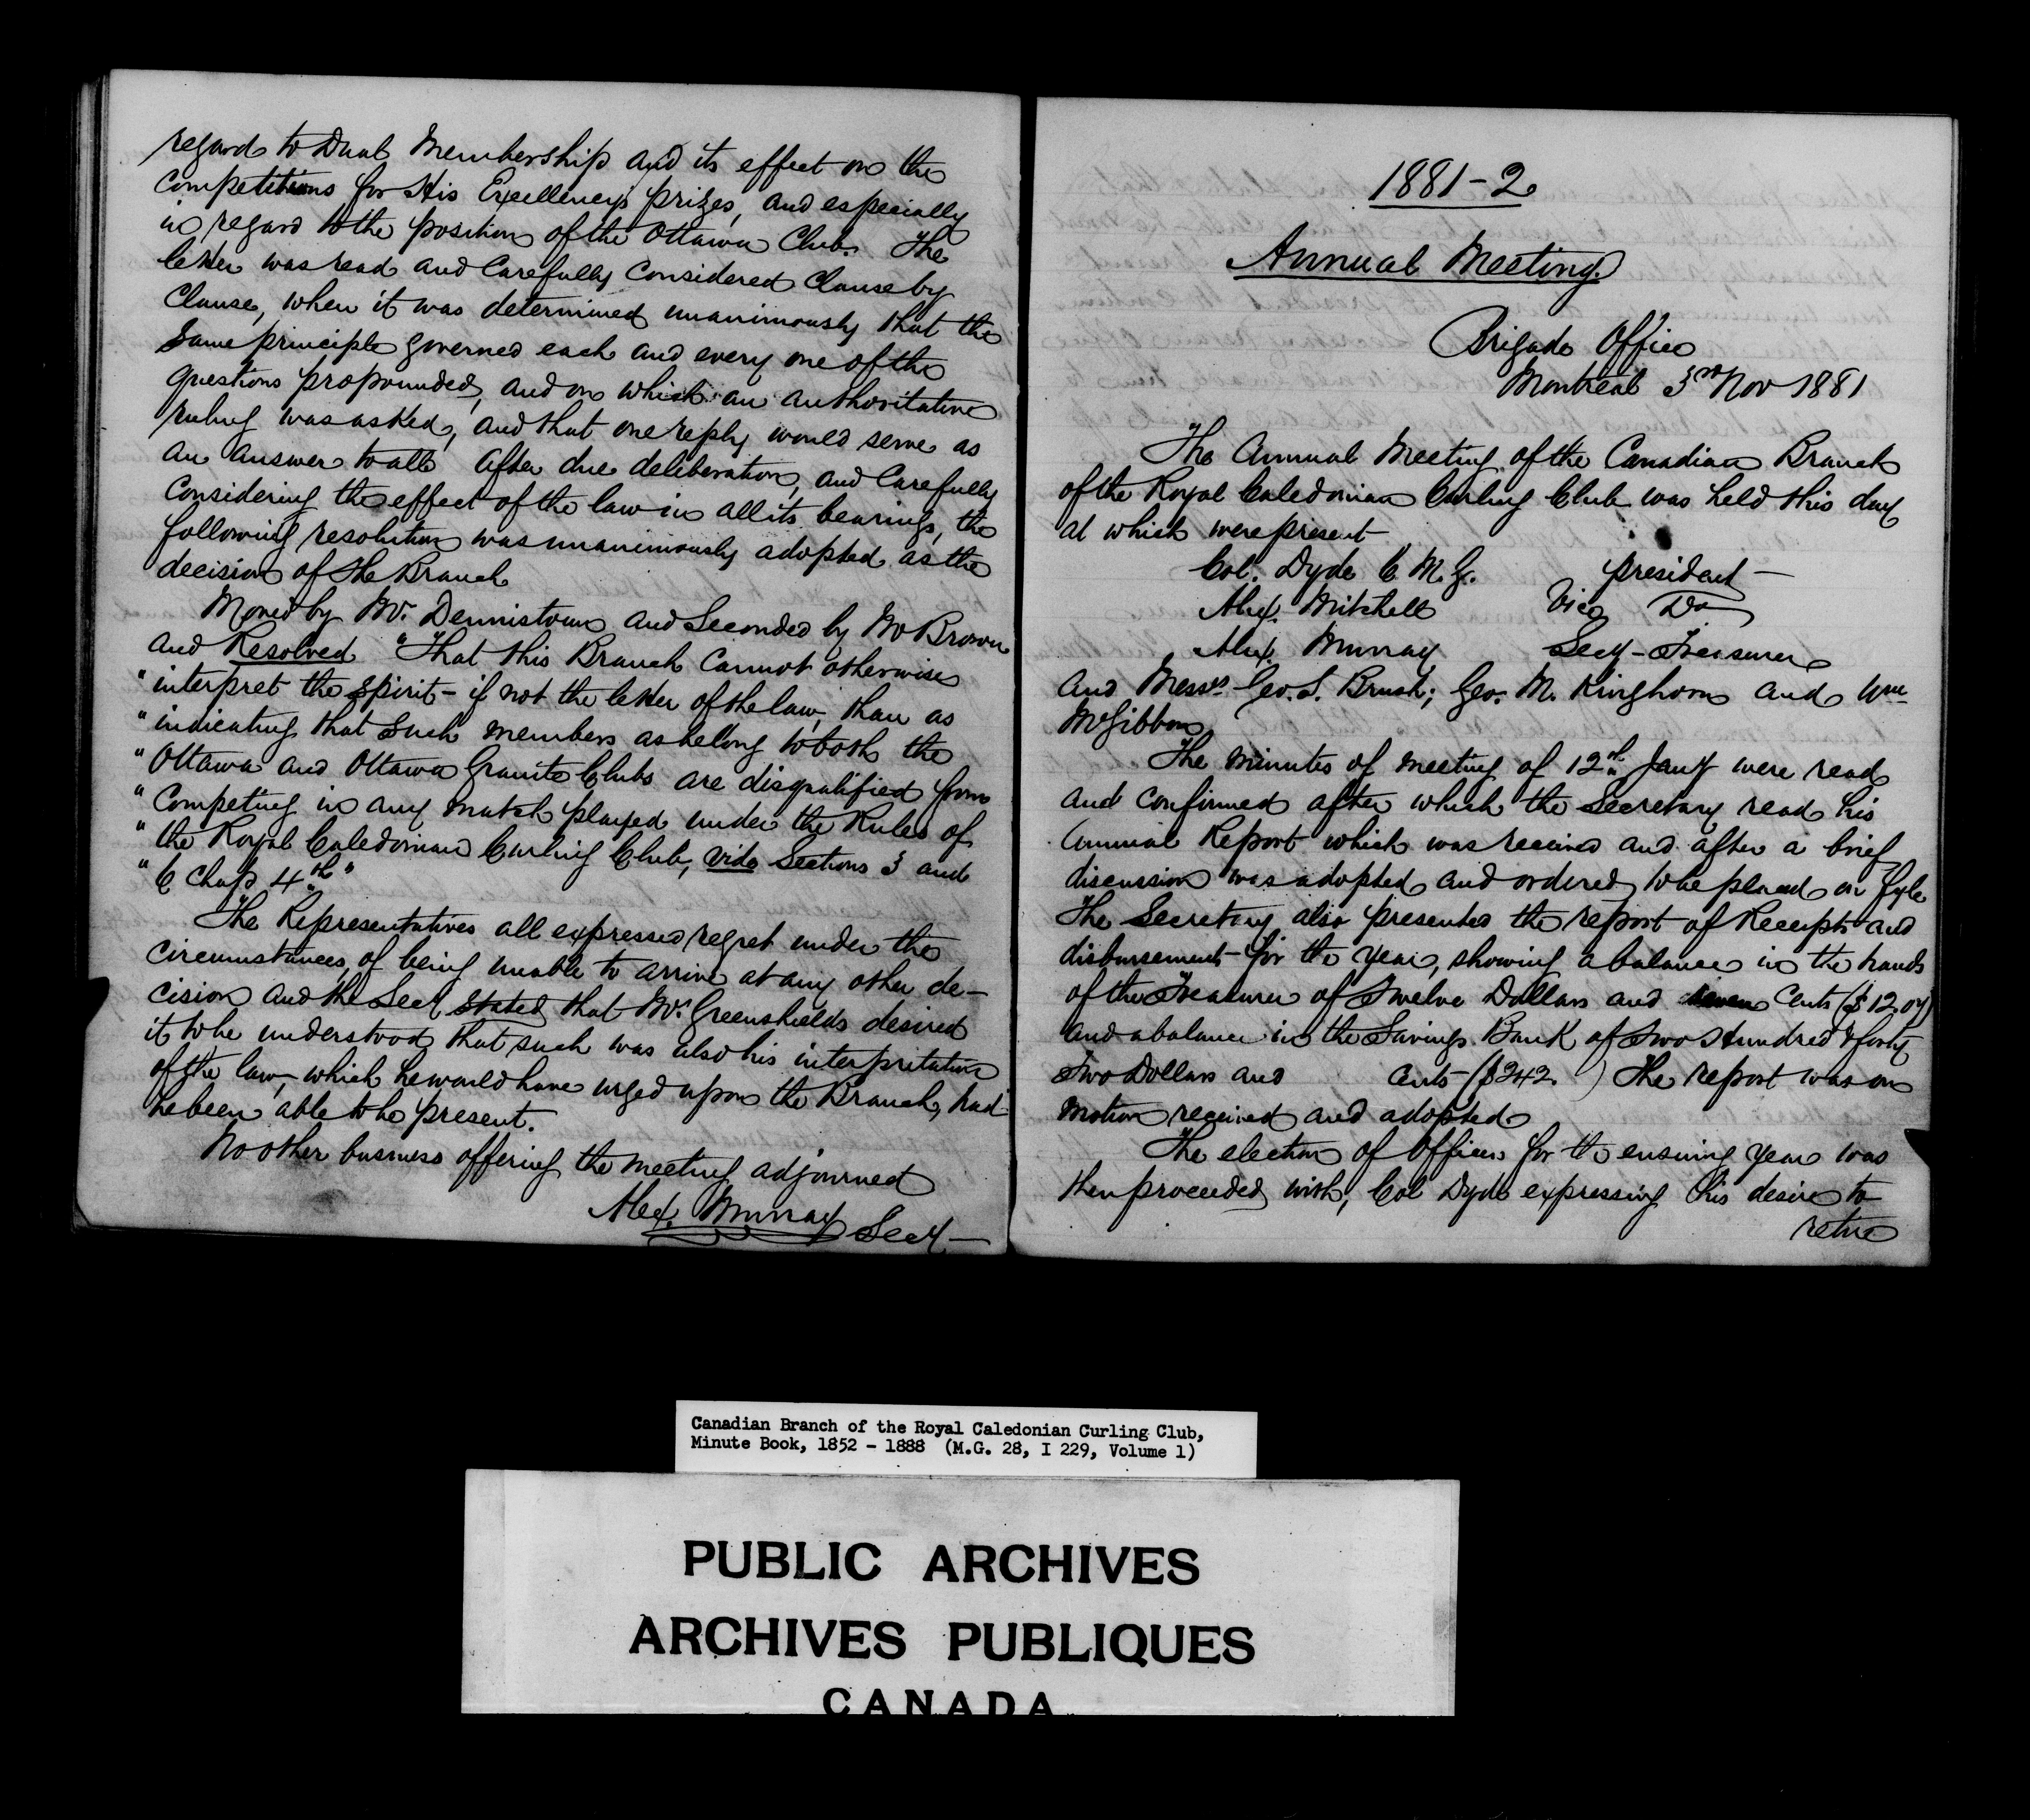 regard to Dual Membership and its effect on the
competitions for His Excellency's prizes, and especially
in regard to the position of the Ottawa Club. The
letter was read and carefully considered clause by
clause, when it was determined unanimously that the
same principle governed each and every one of the
questions propounded, and on which an authoritative
ruling was asked, and that one reply would serve as
an answer to all. After due deliberation, and carefully
considering the effect of the law in all its bearings, the
following resolution was unanimously adopted as the
decision of the Branch
Moved by Mr. Dennistoun and Seconded by Mr Brown
and Resolved "That this Branch cannot otherwise
"interpret the spirit - if not the letter of the law, than as
"indicating that such members as belong to both the
"Ottawa and Ottawa Granite Clubs are disqualified from
"competing in any match played under the Rules of
"the Royal Caledonian Curling Club, vide Sections 3 and
"6 Chap 4th"
The Representatives all expressed regret under the
circumstances, of being unable to arrive at any other de-
cision and the Secy stated that Mr. Greenshields desired
it to be understood that such was also his interpritation
of the law, which he would have urged upon the Branch, had
he been able to be present.
No other business offering the meeting adjourned
Alex. Murray Secy
1881-2
Annual Meeting.
Brigade Office
Montreal 3rd Nov 1881
The Annual Meeting of the Canadian Branch
of the Royal Caledonian Curling Club was held this day
at which were present
Col. Dyde C.M.G. president
Alex. Mitchell Vice Do
Alex. Murray Secy-Treasurer
and Messrs Geo. S. Brush; Geo. M. Kinghorn and Wm
McGibbon
The minutes of meeting of 12th Jany were read
and confirmed after which the Secretary read his
Annual Report which was received and after a brief
discussion was adopted and ordered to be placed on fyle
The Secretary also presented the report of Receipts and
disbursements for the year, showing a balance in the hands
of the Treasurer of Twelve Dollars and seven Cents ($12.07)
and a balance in the Savings Bank of Two Hundred & forty
Two Dollars and cents ($242. ) The report was on
motion received and adopted.
The election of Officers for the ensuing year was
then proceeded with, Col Dyde expressing his desire to
retire
Canadian Branch of the Royal Caledonian Curling Club,
Minute Book, 1852 - 1888 (M.G. 28, I 229, Volume 1)
PUBLIC ARCHIVES
ARCHIVES PUBLIQUES
CANADA